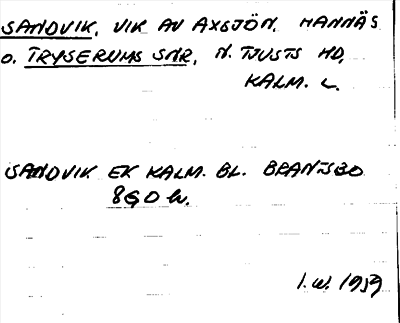 SANDVIK, VIK AV AXSJÖN, HANNÄS
o. TRYSERUMS SNR, N. TJUSTS HD,
KALM. L.
SANDVIK EK KALM. BL. BRANTSBO
8G0 W.
I.W. 1959